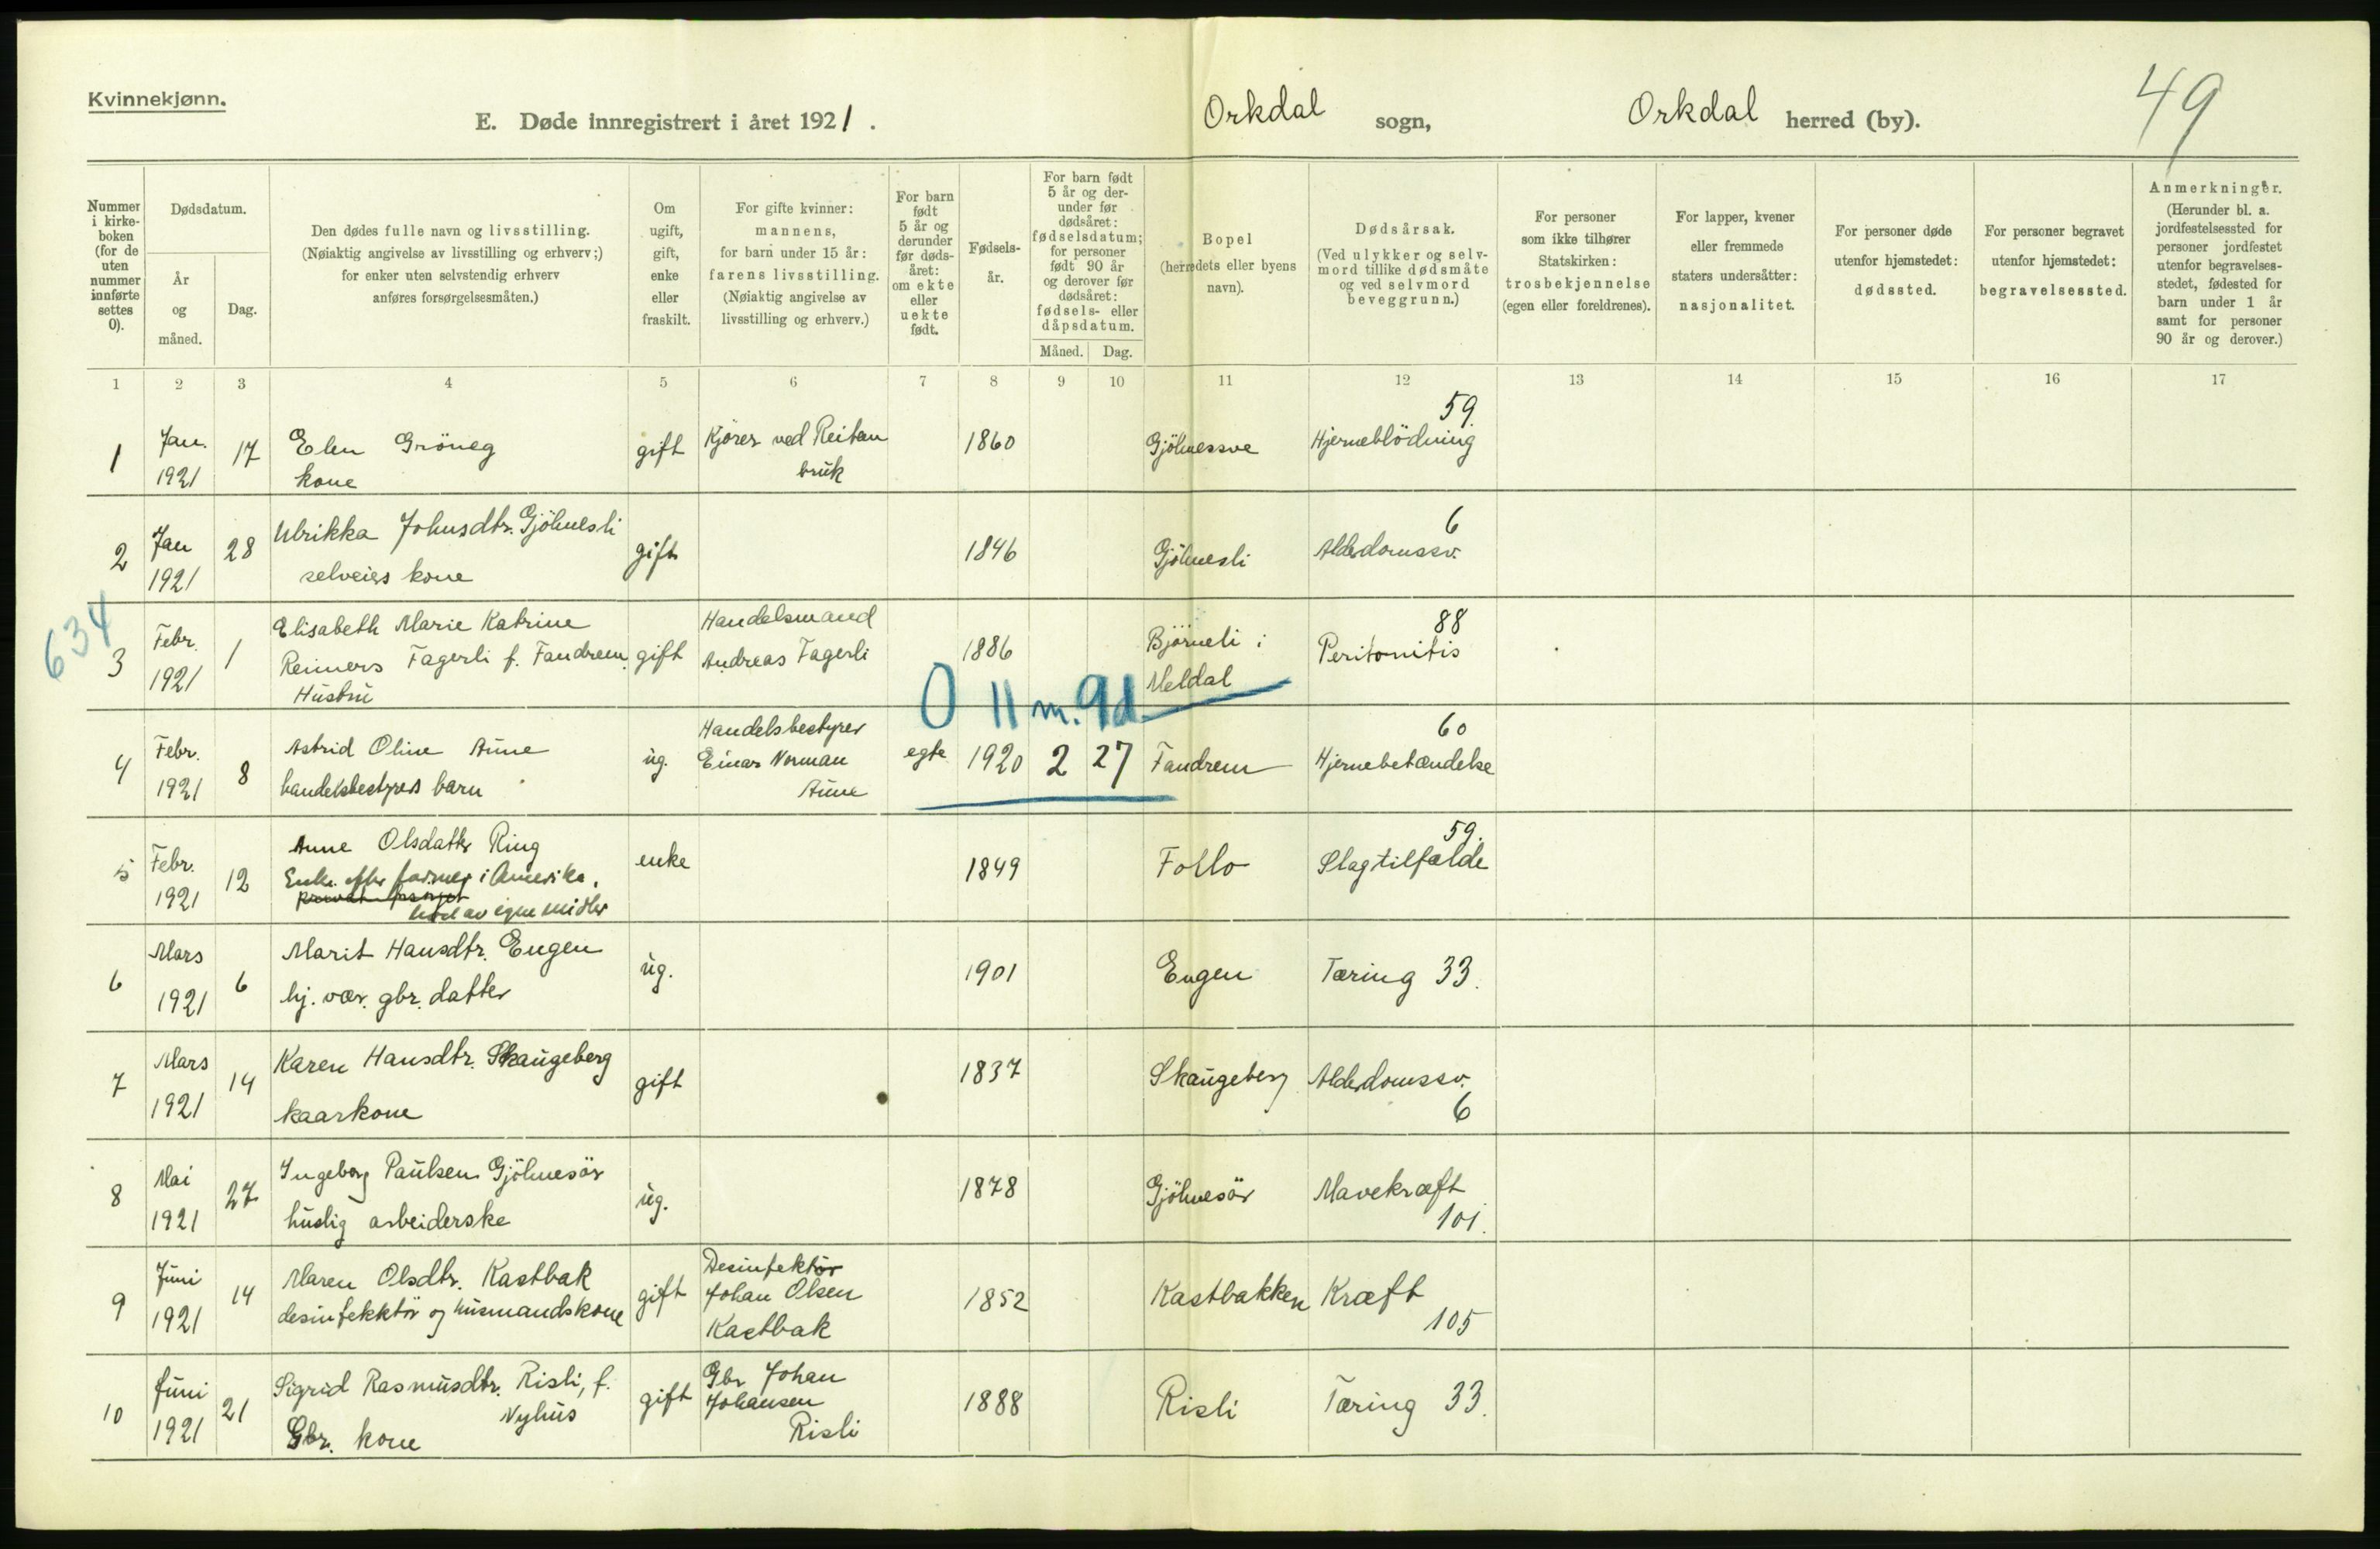 Kvinnekjønn.
E. Døde innregistrert i året 1921.
Orkdal sogn,
Orkdal herred (by).
49
Nummer i kirke-boken (for de uten nummer innførte settes 0).
Dødsdatum.
År og måned.
Dag.
Den dødes fulle navn og livsstilling.
(Nøiaktig angivelse av livsstilling og erhverv;)
for enker uten selvstendig erhverv
anføres forsørgelsesmåten.)
Om ugift, gift, enke eller fraskilt.
For gifte kvinner:
mannens,
for barn under 15 år:
farens livsstilling.
(Nøiaktig angivelse av
livsstilling og erhverv.)
For barn født 5 år og derunder før døds-året: om ekte eller uekte født.
Fødsels-år.
For barn født 5 år og der-under før dødsåret: fødselsdatum; for personer født 90 år og derover før dødsåret: fødsels- eller dåpsdatum.
Måned. Dag.
Bopel
(herredets eller byens
navn).
Dødsårsak.
(Ved ulykker og selv-
mord tillike dødsmåte
og ved selvmord
beveggrunn.)
For personer
som ikke tilhører
Statskirken:
trosbekjennelse
(egen eller foreldrenes).
For lapper, kvener
eller fremmede
staters undersåtter:
nasjonalitet.
For personer døde
utenfor hjemstedet:
dødssted.
For personer begravet
utenfor hjemstedet:
begravelsessted.
Anmerkninger.
(Herunder bl. a.
jordfestelsessted for
personer jordfestet
utenfor begravelses-
stedet, fødested for
barn under 1 år
samt for personer
90 år og derover.)
1 2 3 4 5 6 7 8 9 10 11 12 13 14 15 16 17
59.
1 Jan. 17 Elen Gröneg gift Kjörer ved Reitan 1860 Gjölmessve Hjerneblödning
1921 kone bruk
6
2 Jan 28 Ulrikka Johnsdtr. Gjölmesli gift 1846 Gjölmesli Alderdomssv.
1921 selveiers kone
634
88
3 Febr. 1 Elisabeth Marie Katrine gift Handelsmand 1886 Björneli i Peritonitis
1921 Reiners Fagerli f. Fandrem. Andreas Fagerli Meldal
Hustru
0 11 m. 9 d
60
4 Febr. 8 Astrid Oline Aune ug. Handelsbestyrer egte 1920 2 27 Fandrem Hjernebetændelse
1921 handelsbestyrers barn Einar Norman
Aune
59.
5 Febr. 12 Anne Olsdatter Ring enke 1849 Follo Slagtilfælde
1921 Enke efter farmer i Amerika.
levd av egne midler
6 Mars 6 Marit Hansdtr. Engen ug. 1901 Engen Tæring 33.
1921 hj. vær. gbr. datter
7 Mars 14 Karen Hansdtr. Skaugeberg gift 1837 Skaugeberg Alderdomssv.
1921 kaarkone 6
8 Mai 27 Ingeborg Paulsen Gjölmesör ug. 1878 Gjölmesör Mavekræft
1921 huslig arbeiderske 101.
9 Juni 14 Maren Olsdtr. Kastbak gift Desinfektör 1852 Kastbakken Kræft
1921 desinfekktör og husmandskone Johan Olsen 105
Kastbak
10 Juni 21 Sigrid Rasmusdtr. Risli, f. gift Gbr Johan 1888 Risli Tæring 33.
1921 Nyhus Johansen
Gbr. kone Risli